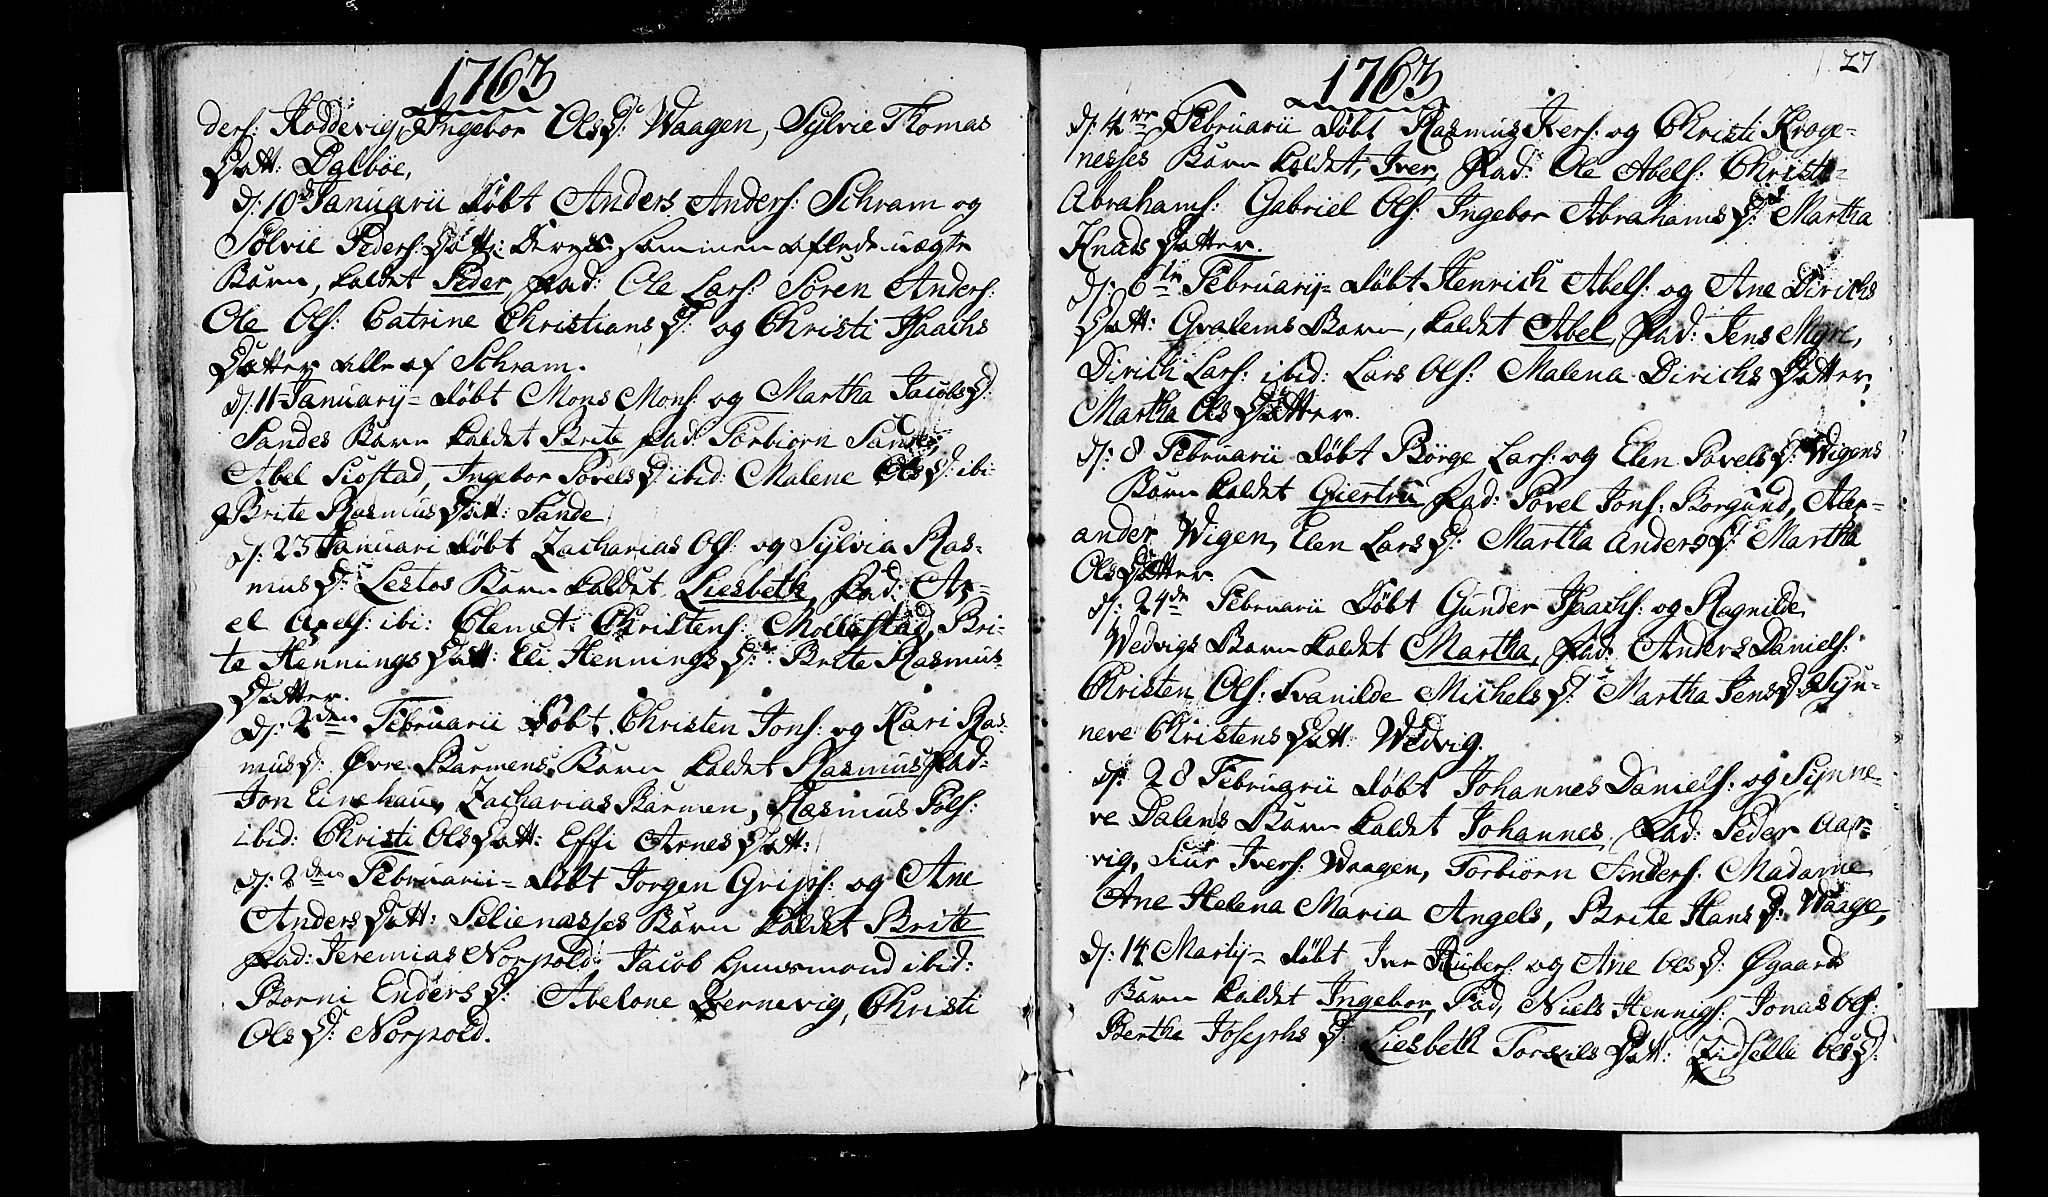 1763
ders: Hoddevig, Ingebor Ols D: Waagen, Sylvie Thomas
Datt: Dalbøe.
d: 10d Januarii døbt Anders Anders: Schram og
Sølvie Peders: Datt: deres sammen aflede uægte
Barn, kaldet Peder, Fad: Ole Lars: Søren Anders:
Ole Ols: Catrine Christians D: og Christi Isaachs
Datter alle af Schram.
d: 11 Januarij døbt Mons Mons: og Martha Jacobs D:
Sandes Barn kaldet Brite, Fad: Torbiørn Sande,
Abel Siøstad, Ingebor Povels D: ibid: Malene Ols D: ibi:
Brite Rasmus Datt: Sande
d: 23 Januari døbt Zacharias Ols: og Sylvia Ras-
mus D: Lestos Barn kaldet Liesbeth, Fad: Ax-
el Axels: ibi: Clemet Christens: Mollestad, Bri-
te Hennings Datt: Eli Hennings D: Brite Rasmus
Datter.
d: 2den Februarii døbt Christen Jons: og Kari Ras-
mus D: Øvre Barmens Barn kaldet Rasmus, Fad:
Jon Eirehau, Zacharias Barmen, Rasmus Pols:
ibid: Christi Ols Datt: Effi Arnes Datt:
d: 2den Februarii døbt Jorgen Grips: og Ane
Anders Datt: Selienesses Barn kaldet Brite
Fad: Jeremias Norpold: Jacob Huusmand ibid:
Borni Enders D: Abelone Bernevig, Christi
Ols D: Norpold.
1763
27
d: 4re Februarii døbt Rasmus Ivers: og Christi Krage-
nesses Barn kaldet, Iver, Fad: Ole Abels: Christi-
Abrahams: Gabriel Ols: Ingebor Abrahams D: Martha
Knuds Datter.
d: 6te Februarij døbt Henrich Abels: og Ane Dirichs
Datt: Gvalems Barn, kaldet Abel, Fad: Jens Myre,
Dirich Lars: ibid: Lars Ols: Malena Dirichs Datter,
Martha Ols Datter.
d: 8 Februarii døbt Børge Lars: og Elen Povels D: Wigens
Barn kaldet Giertru Fad: Povel Jons: Borgund, Alex-
ander Wigen, Elen Lars D: Martha Anders D: Martha
Ols Datter.
d: 24de Februarii døbt Gunder Isaachs: og Ragnilde
Wedvigs Barn kaldet Martha, Fad: Anders Daniels:
Christen Ols: Svanilde Michels D: Martha Jens D: Syn-
neve Christens Datt: Wedvig.
d: 28 Februarii døbt Johannes Daniels: og Synne-
ve Dalens Barn kaldet Johannes, Fad: Peder Aar-
vig, Siur Ivers: Waagen, Torbiørn Anders: Madame
Ane Helena Maria Angels, Brite Hans D: Waage,
d: 14 Martij døbt Iver Rubers: og Ane Ols D: Øgaards
Barn kaldet Ingebor, Fad, Niels Hennigs: Jonas Ols:
Berthe Josephs D: Liesbeth Torkils Datt: Zidselle Ols D: